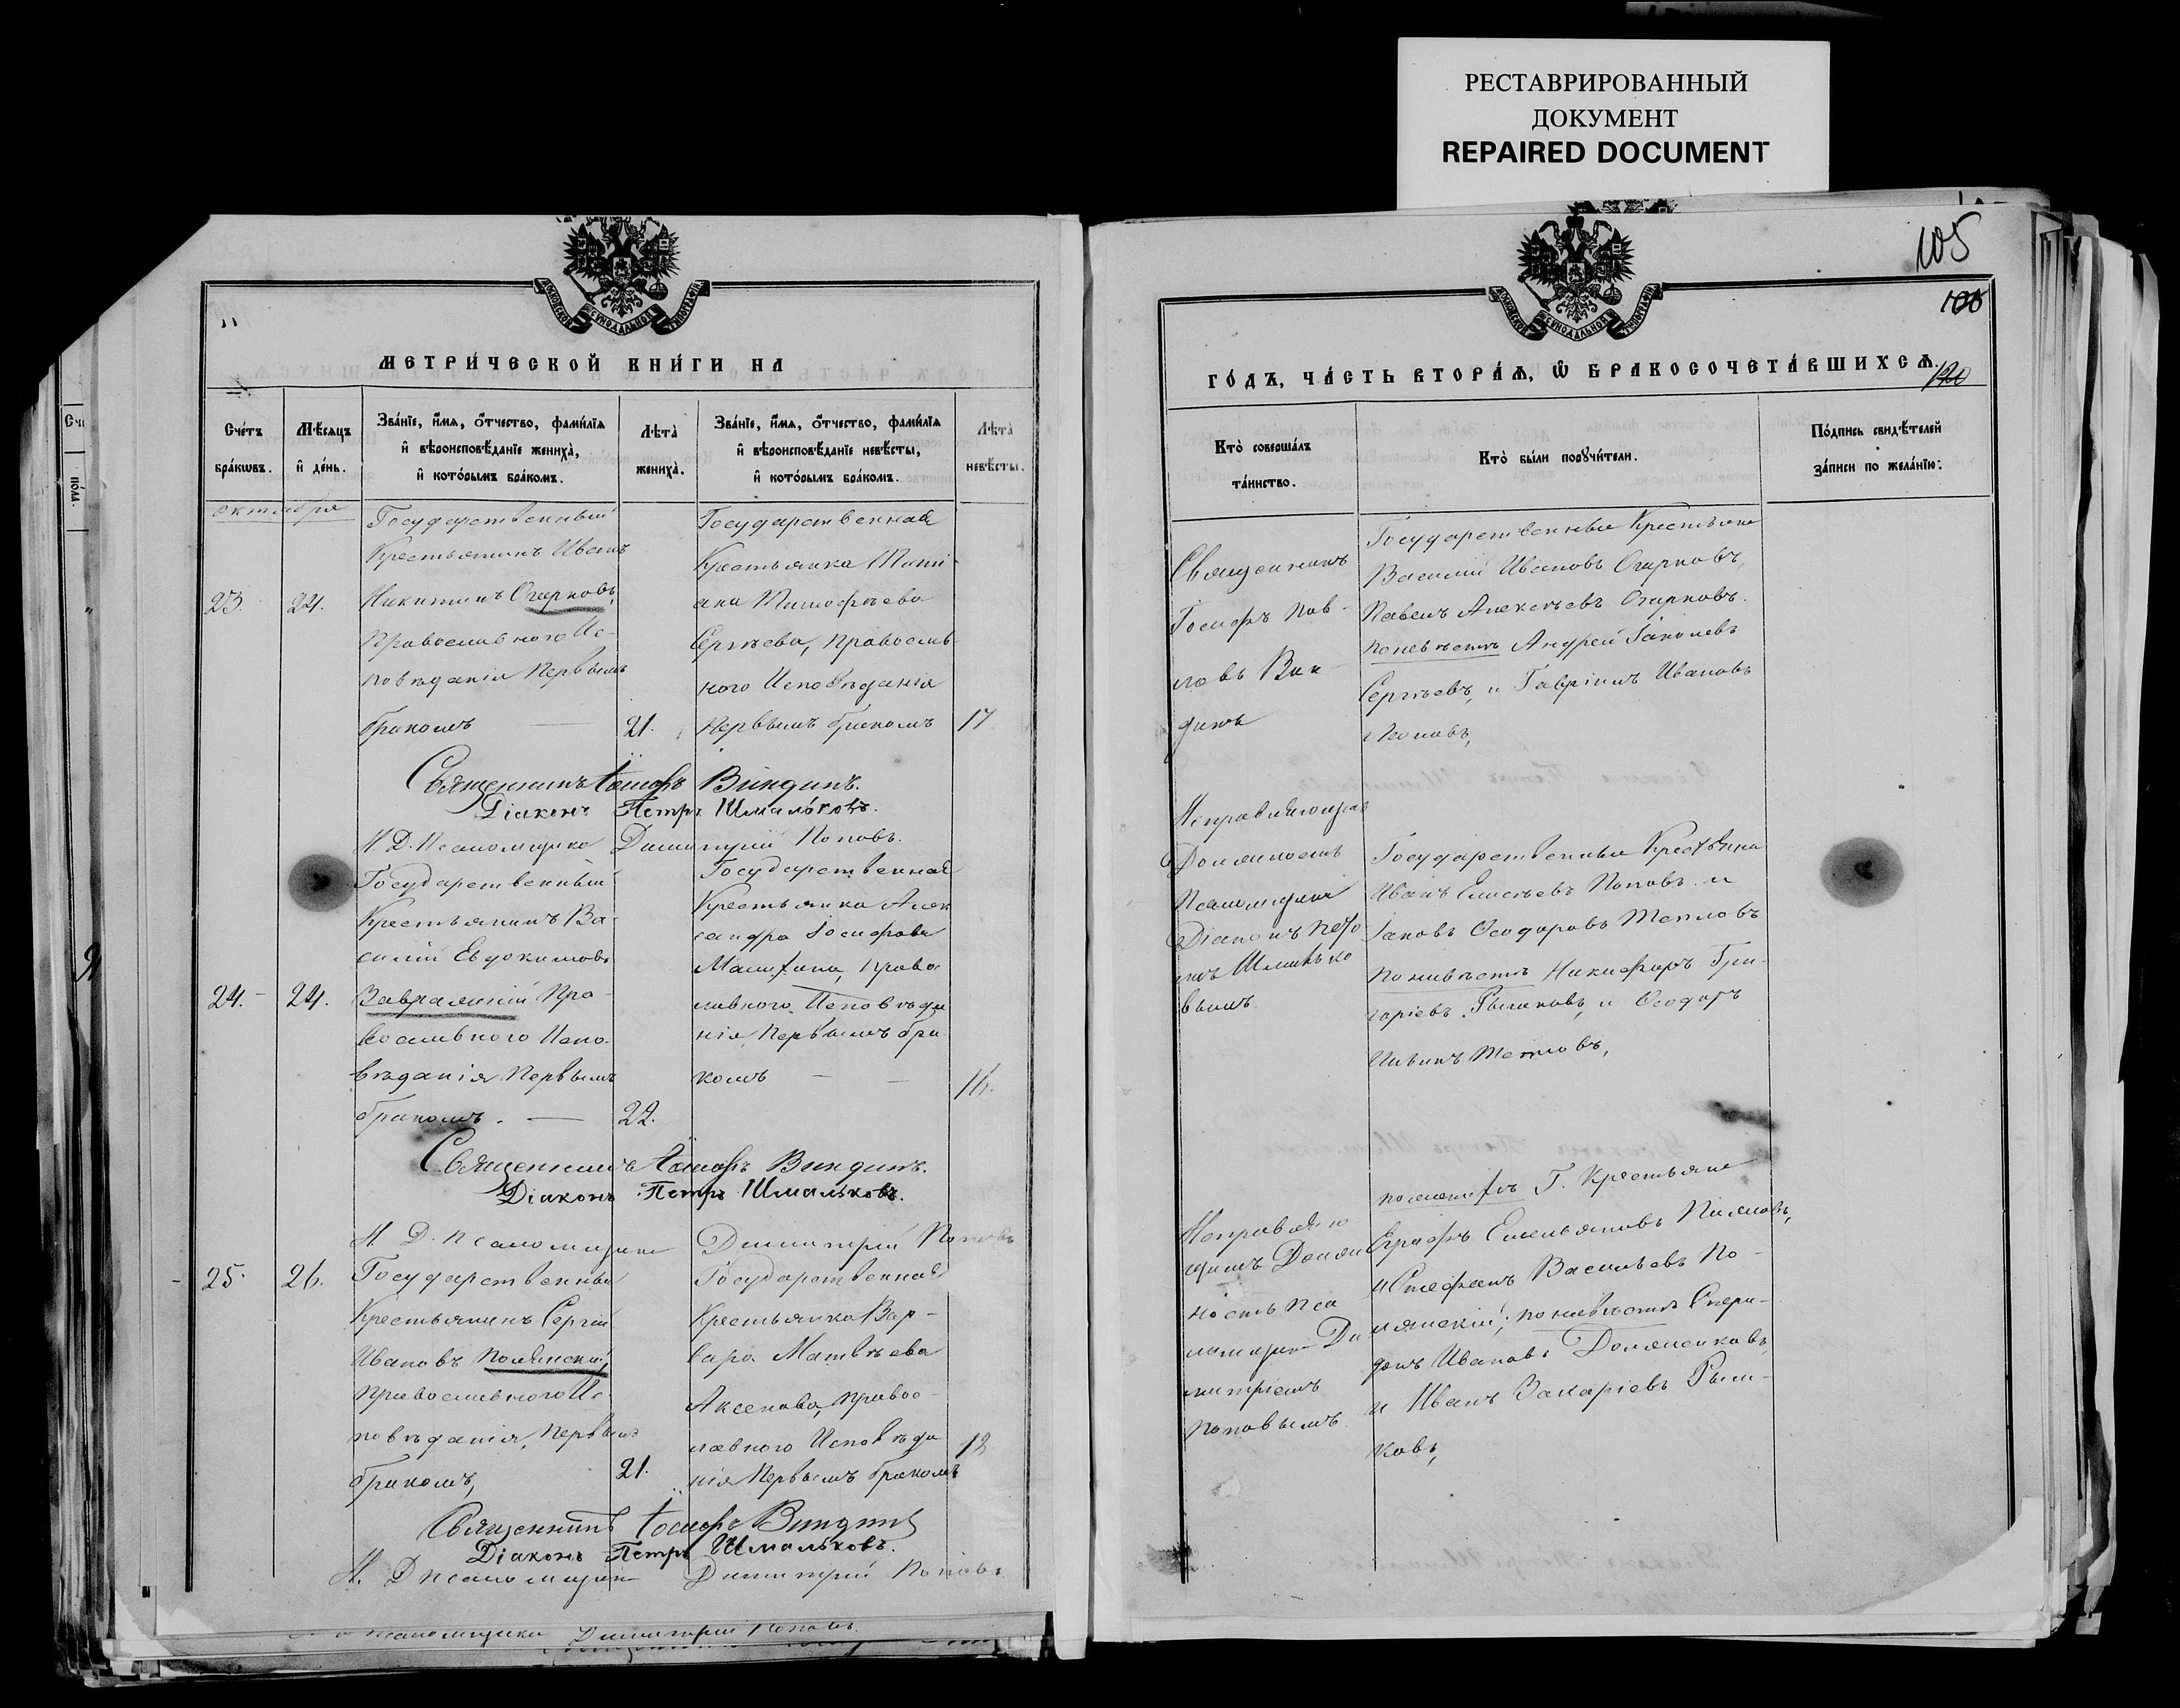 РЕСТАВРИРОВАННЫЙ
ДОКУМЕНТ
REPAIRED DOCUMENT
105
МОСКОВСКОЙ СѴНОДАЛЬНОЙ ТИПОГРАФІИ
МЕТРИ́ЧЕСКОЙ КНИ́ГИ НА
Сче́тъ бра́кωвъ.
Мѣ́сяцъ и҆ де́нь.
Зва́нїе, и҆́мѧ, ѻ҆́тчество, фами́лїѧ
и҆ вѣроисповѣ́данїе жениха̀,
и҆ кото́рымъ бра́комъ.
Лѣ́та̀ жениха̀.
Зва́нїе, и҆́мѧ, ѻ҆́тчество, фами́лїѧ
и҆ вѣроисповѣ́данїе невѣ́сты,
и҆ кото́рымъ бра́комъ.
Лѣ́та̀ невѣ́сты.
октября
23.
24.
Государственный
Крестьянинъ Иванъ
Никитинъ Огарковъ,
Православного Ис-
повѣданія Первымъ
бракомъ
21.
Государственная
Крестьянка Тати-
ана Тимофѣева
Сергѣева, Православ-
ного Исповѣданія
Первымъ бракомъ
17
Священникъ Іосифъ Виндинъ.
Діаконъ Петръ Шмальковъ.
И. Д. Псаломщика Димитрій Поповъ.
24.
24.
Государственный
Крестьянинъ Ва-
силій Евдокимовъ
Завражній Пра-
вославного Испо-
вѣданія Первымъ
бракомъ.
22.
Государственная
Крестьянка Алек
сандра Іосифова
Право
славного Исповѣда
нія, Первымъ бра
комъ
16.
Священникъ Іосифъ Виндинъ.
Діаконъ Петръ Шмальковъ.
И. Д. Псаломщика Димитрій Поповъ
25.
26.
Государственный
Крестьянинъ Сергій
Ивановъ Полянскій,
Православного Ис-
повѣданія, Первымъ
бракомъ,
21.
Государственная
Крестьянка Вар-
вара Матвѣева
Аксенова, Право-
славного Исповѣда
нія Первымъ бракомъ
Священникъ Іосифъ Виндинъ
Діаконъ Петръ Шмальковъ.
И. Д Псаломщика Димитрій Поповъ
Псаломщика Димитрій Поповъ.
МОСКОВСКОЙ СѴНОДАЛЬНОЙ ТИПОГРАФІИ
120
ГО́ДЪ, ЧА́СТЬ ВТОРА́Ѧ, Ѡ҆ БРАКОСОЧЕТА́ВШИХСѦ.
Кто̀ соверша́лъ
та́инство.
Кто̀ бы́ли порꙋчи́тели.
По́дпись свидѣ́телей
за́писи по жела́нїю.
Священникъ
Іосифъ Пав-
ловъ Вин-
динъ
Государственные Крестьяне
Василій Ивановъ Огарковъ,
Павелъ Алексѣевъ Огарковъ.
по невѣстѣ Андрей Іаковлевъ
Сергѣевъ, и Гавріилъ Ивановъ
Должность
Псаломщика
Діаконъ Пет
ръ Шмалько
вымъ.
Государственные Крестьяне
Иванъ Елисѣевъ Поповъ и
Іаковъ Ѳеодоровъ Тепловъ
По невѣстѣ Никифоръ Гри-
горіевъ Рыжковъ, и Ѳеодоръ
Ильинъ Тепловъ,
Исправляю
щимъ Долж
ность Пса
ломщика Ди
митріемъ
Поповымъ
по женихѣ Г. Крестьяне
Емельяновъ
и Стефанъ Васильевъ По-
лянскій; по невѣстѣ Спири-
донъ Ивановъ Долженковъ
и Иванъ Захаріевъ Рыж-
ковъ,